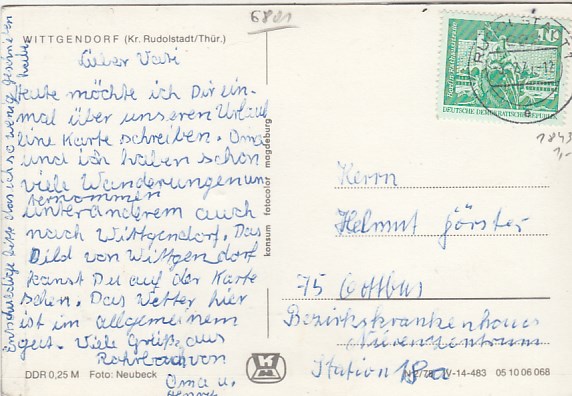 6821
WITTGENDORF (Kr. Rudolstadt/Thür.)
Lieber Vati
Heute möchte ich Dir ein-
mal über unseren Urlaub
eine Karte schreiben. Oma
und ich haben schon
viele Wanderungen un
ternommen
unter anderem auch
nach Wittgendorf. Das
Bild von Wittgendorf
kanst Du auf der Karte
sehen. Das Wetter hier
ist im allgemeinem
gut. Viele Grüße aus
von
Oma u.
Entschuldige bitte das ich so wenig geschrieben
habe
konsum fotocolor magdeburg
DDR 0,25 M Foto: Neubeck
DEUTSCHE DEMOKRATISCHE REPUBLIK
1843
1,-
Herrn
Helmut Förster
75 Cottbus
Bezirkskrankenhaus
Nierenzentrum
Station 18a
IV-14-483 05 10 06 068